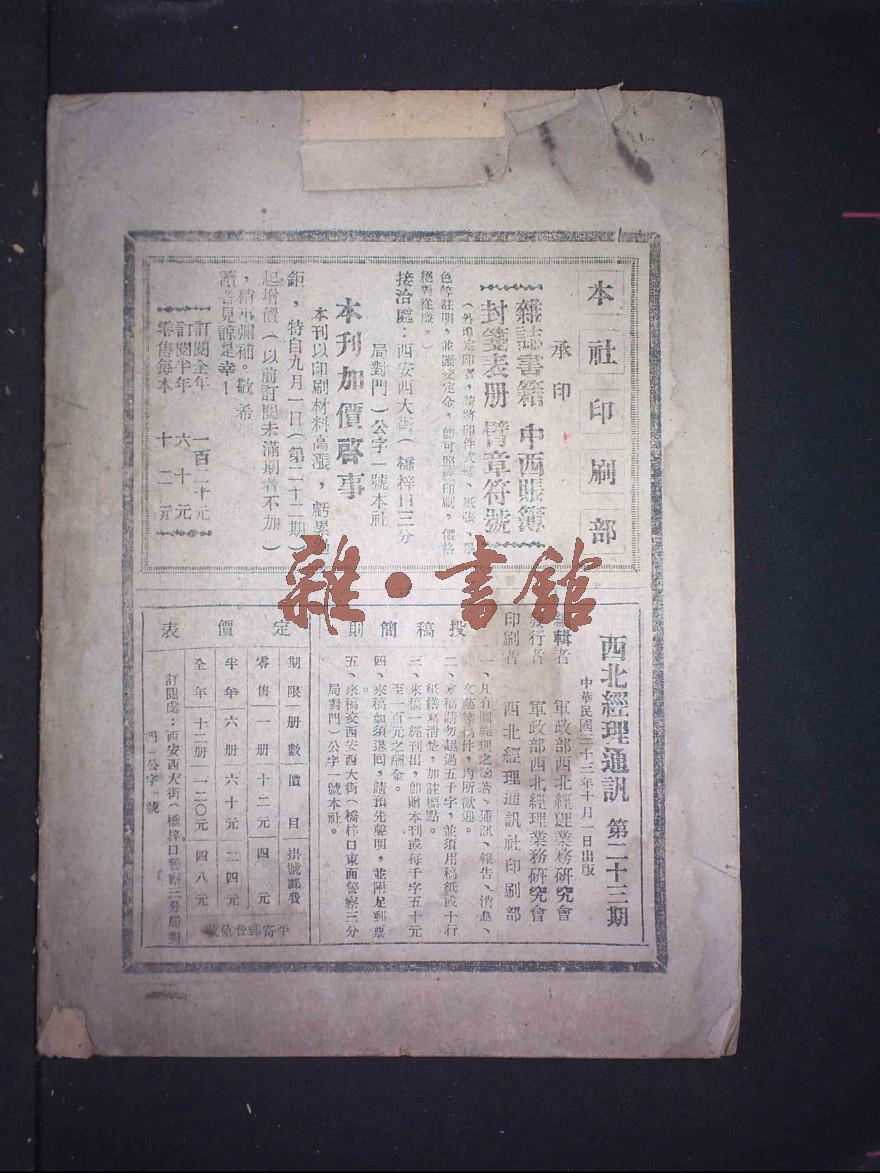 本社印刷部
承印
雜誌書籍 中西賬簿
封箋表册 臂章符號
(外埠定印者,請將印件式樣、紙張、顏
色等註明,並匯交定金,卽可照樣印刷,價格
絕對從廉。)
接洽處:西安西大街(橋梓口三分
局對門)公字一號本社
本刊加價啓事
本刊以印刷材料高漲,虧累過
鉅,特自九月一日(第二十二期)
起增價(以前訂閱未滿期者不加)
,稍示彌補。敬希
讀者見諒是幸!
訂閱全年 一百二十元
訂閱半年 六十元
零售每本 十二元
西北經理通訊 第二十三期
中華民國三十三年十月一日出版
編輯者 軍政部西北經理業務研究會
發行者 軍政部西北經理業務研究會
印刷者 西北經理通訊社印刷部
投稿簡則
一、凡有關經理之論著、通訊、報告、消息、
文藝等稿件,均所歡迎。
二、來稿請勿超過五千字,並須用稿紙或十行
紙繕寫清楚,加註標點。
三、來稿一經刊出,卽贈本刊或每千字五十元
至一百元之酬金。
四、來稿如須退回,請預先聲明,並附足郵票
。
五、來稿交西安西大街(橋梓口東面警察三分
局對門)公字一號本社。
定價表
期限 册數 價目 掛號郵費
零售 一册 十二元 四元
半年 六册 六十元 二四元
全年 十二册 一二〇元 四八元
平寄郵費免收
訂閱處:西安西大街(橋梓口警察三分局對
門)公字一號
雜·書館